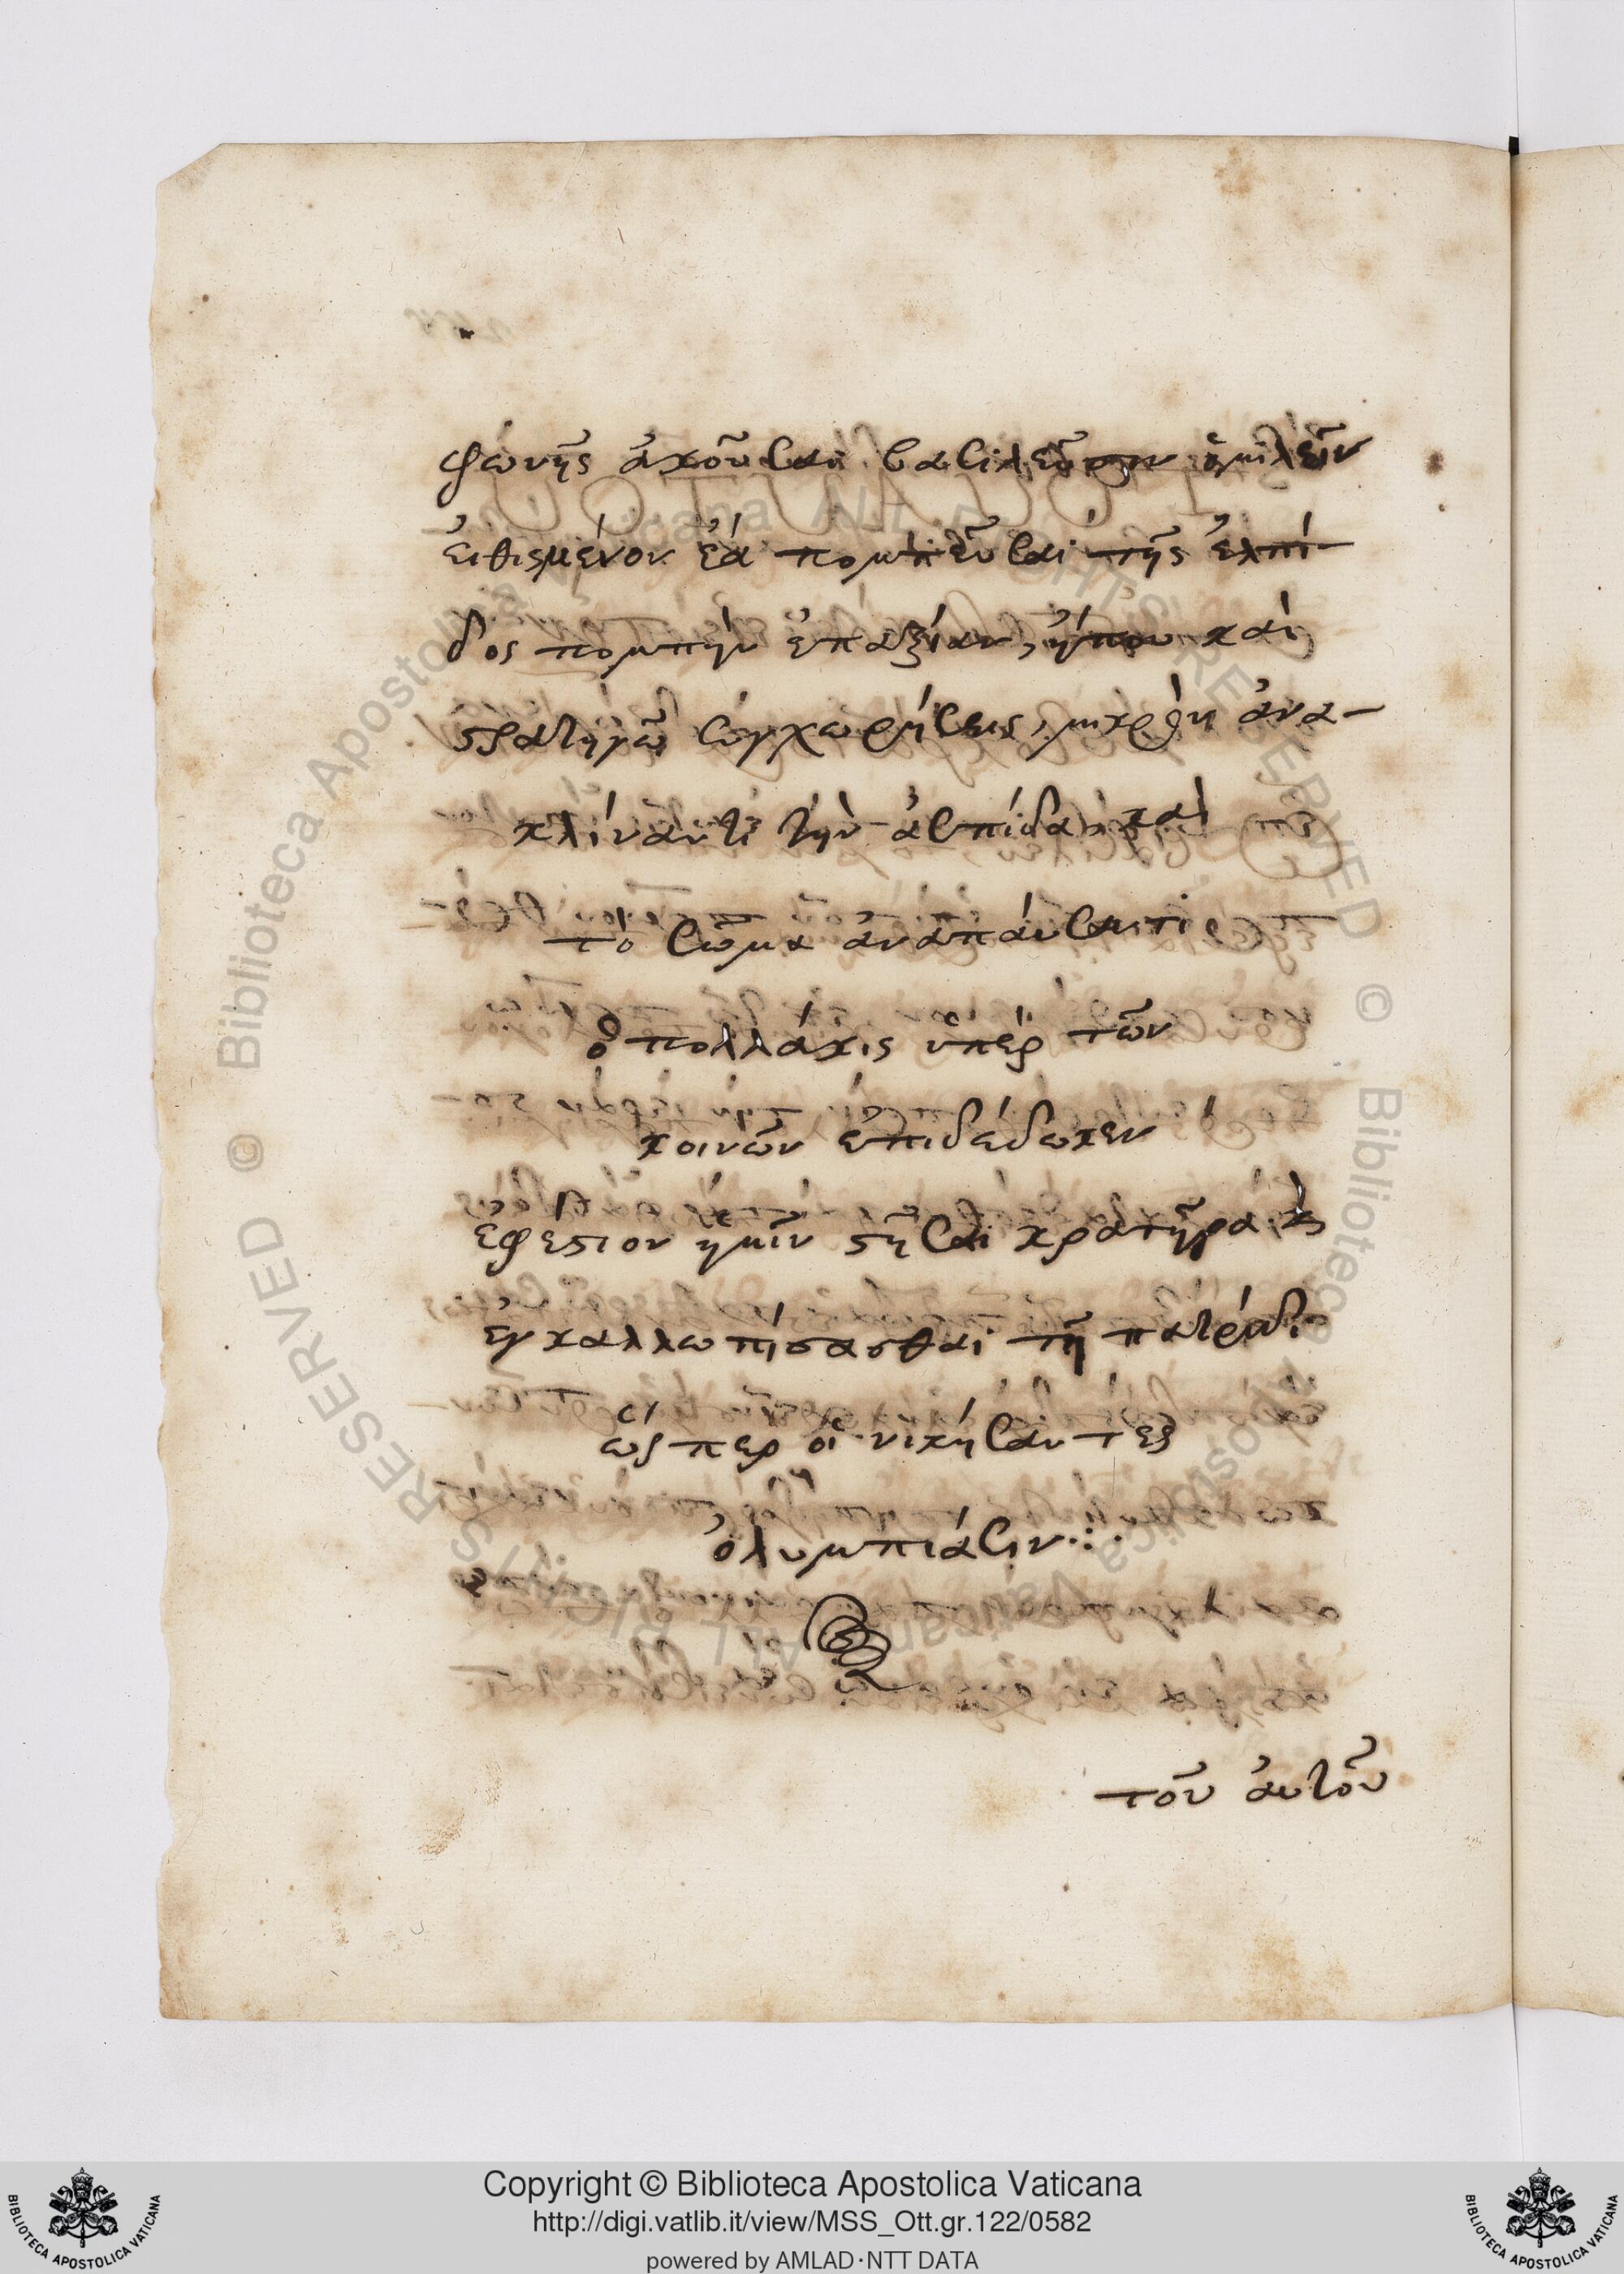 φωνῆς ἀκοῦσαι βασιλεῦσιν ὁμιλεῖν
εἰθισμένον ἐά πομπεῦσαι τῆς ἐλπί-
δος πομπὴν ἐπαξίαν, ἤπου καὶ
στρατηγῷ συγχωρήσεις, μικρὸν ἀνα-
κλίναντι τὴν ἀσπίδα, καὶ
τὸ σῶμα ἀναπαύσαντι
ὃ πολλάκις ὑπὲρ τῶν
κοινῶν ἐπιδέδωκεν
ἐφέστιον ἡμῖν στῆσαι κρατῆρα καὶ
ἐγκαλλωπίσασθαι τῇ πατρίδι
ὥσπερ οἱ νικήσαντες
ὀλυμπιάσιν
τοῦ αὐτοῦ
Copyright © Biblioteca Apostolica Vaticana
http://digi.vatlib.it/view/MSS_Ott.gr.122/0582
powered by AMLAD·NTT DATA
BIBLIOTECA APOSTOLICA VATICANA
BIBLIOTECA APOSTOLICA VATICANA